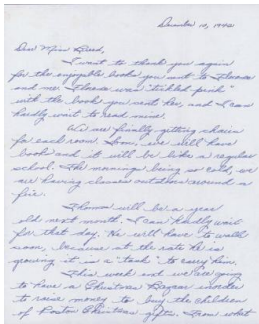 December 10, 1942
Dear Miss Breed,
I want to thank you again
for the enjoyable books you sent to Florence
and me. Florence was "tickled pink"
with the book you sent her, and I can
hardly wait to read mine.
We are finally getting chairs
for each room. Soon, we will have
books and it will be like a regular
school. The mornings being so cold, we
are having classes outdoors around a
fire.
Thomas will be a year
old next month. I can hardly wait
for that day. He will have to walk
soon, because at the rate he is
growing it is a "task" to carry him.
This week end we are going
to have a Christmas Bazaar
to raise money to buy the children
of Poston Christmas gifts. From what